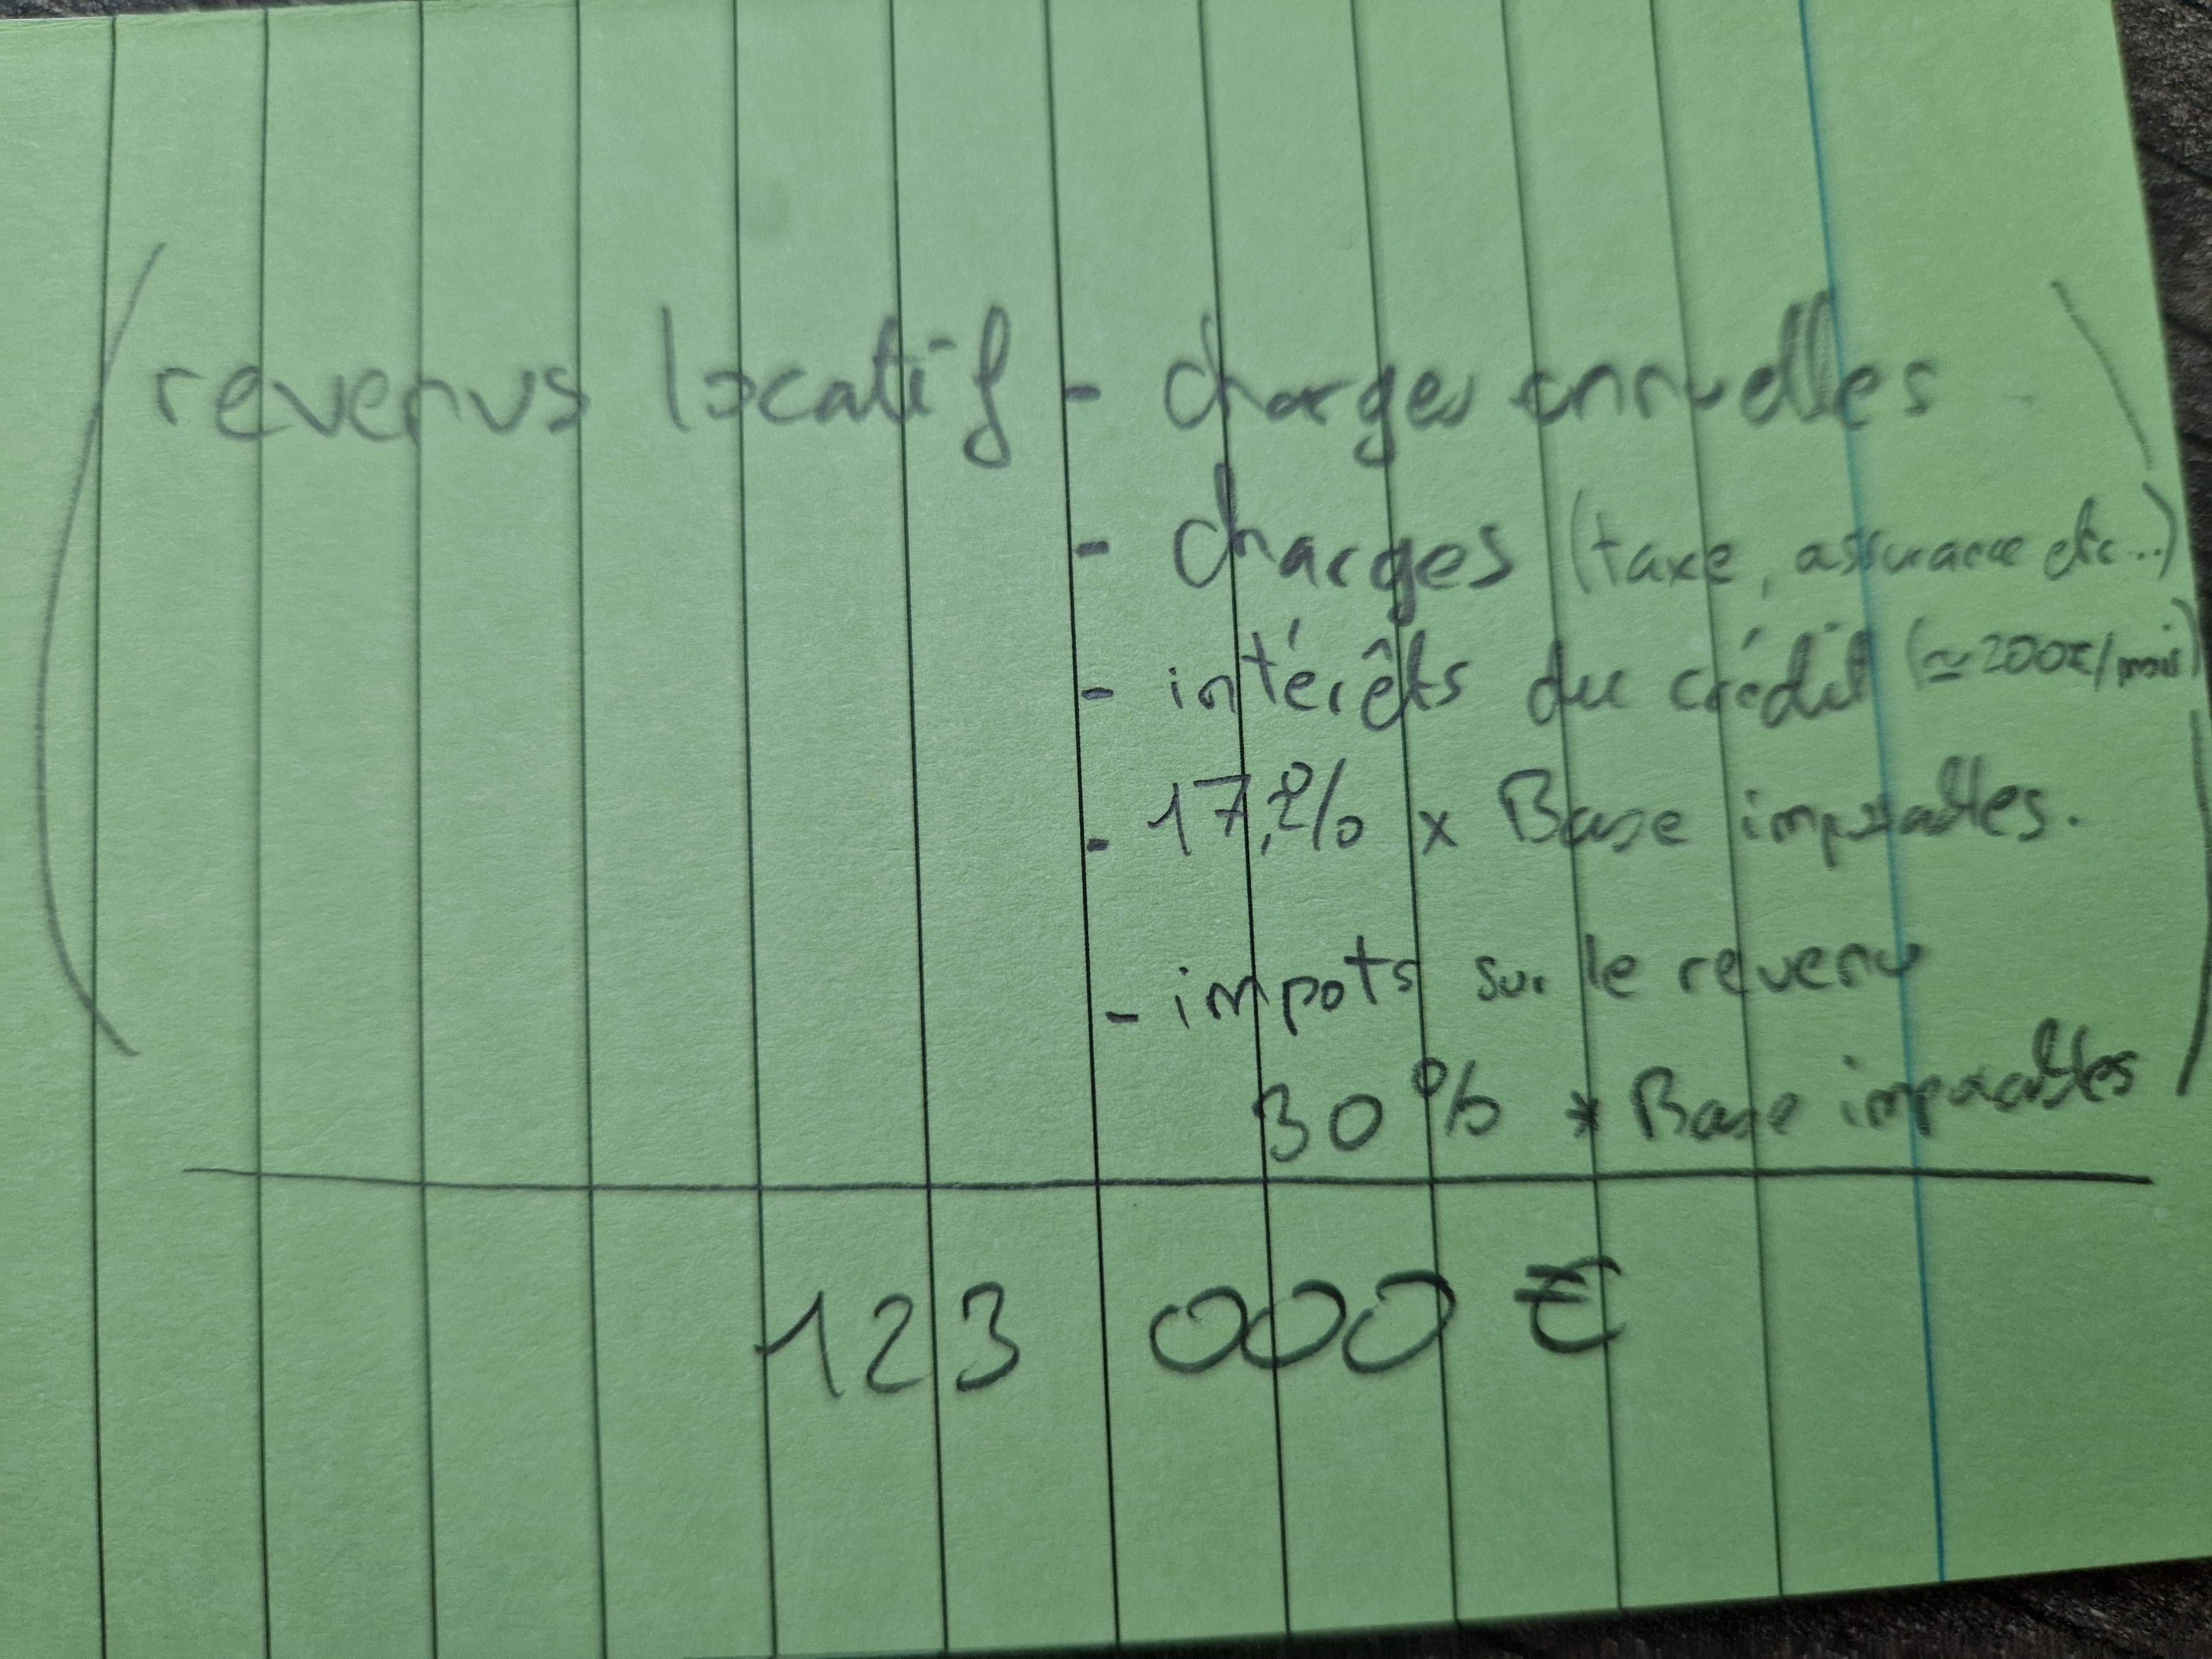 (revenus locatif - charges annuelles)
- charges (taxe, assurance etc...)
- intérêts du crédit (≃200€/mois)
- 17,2% x Base imposables.
- impots sur le revenu
30% * Base imposables
123 000 €